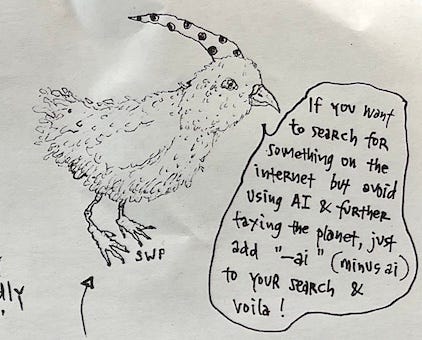 If you want
to search for
something on the
internet but avoid
using AI & further
taxing the planet, just
add "-ai" (minus ai)
to your search &
voila!
SWP